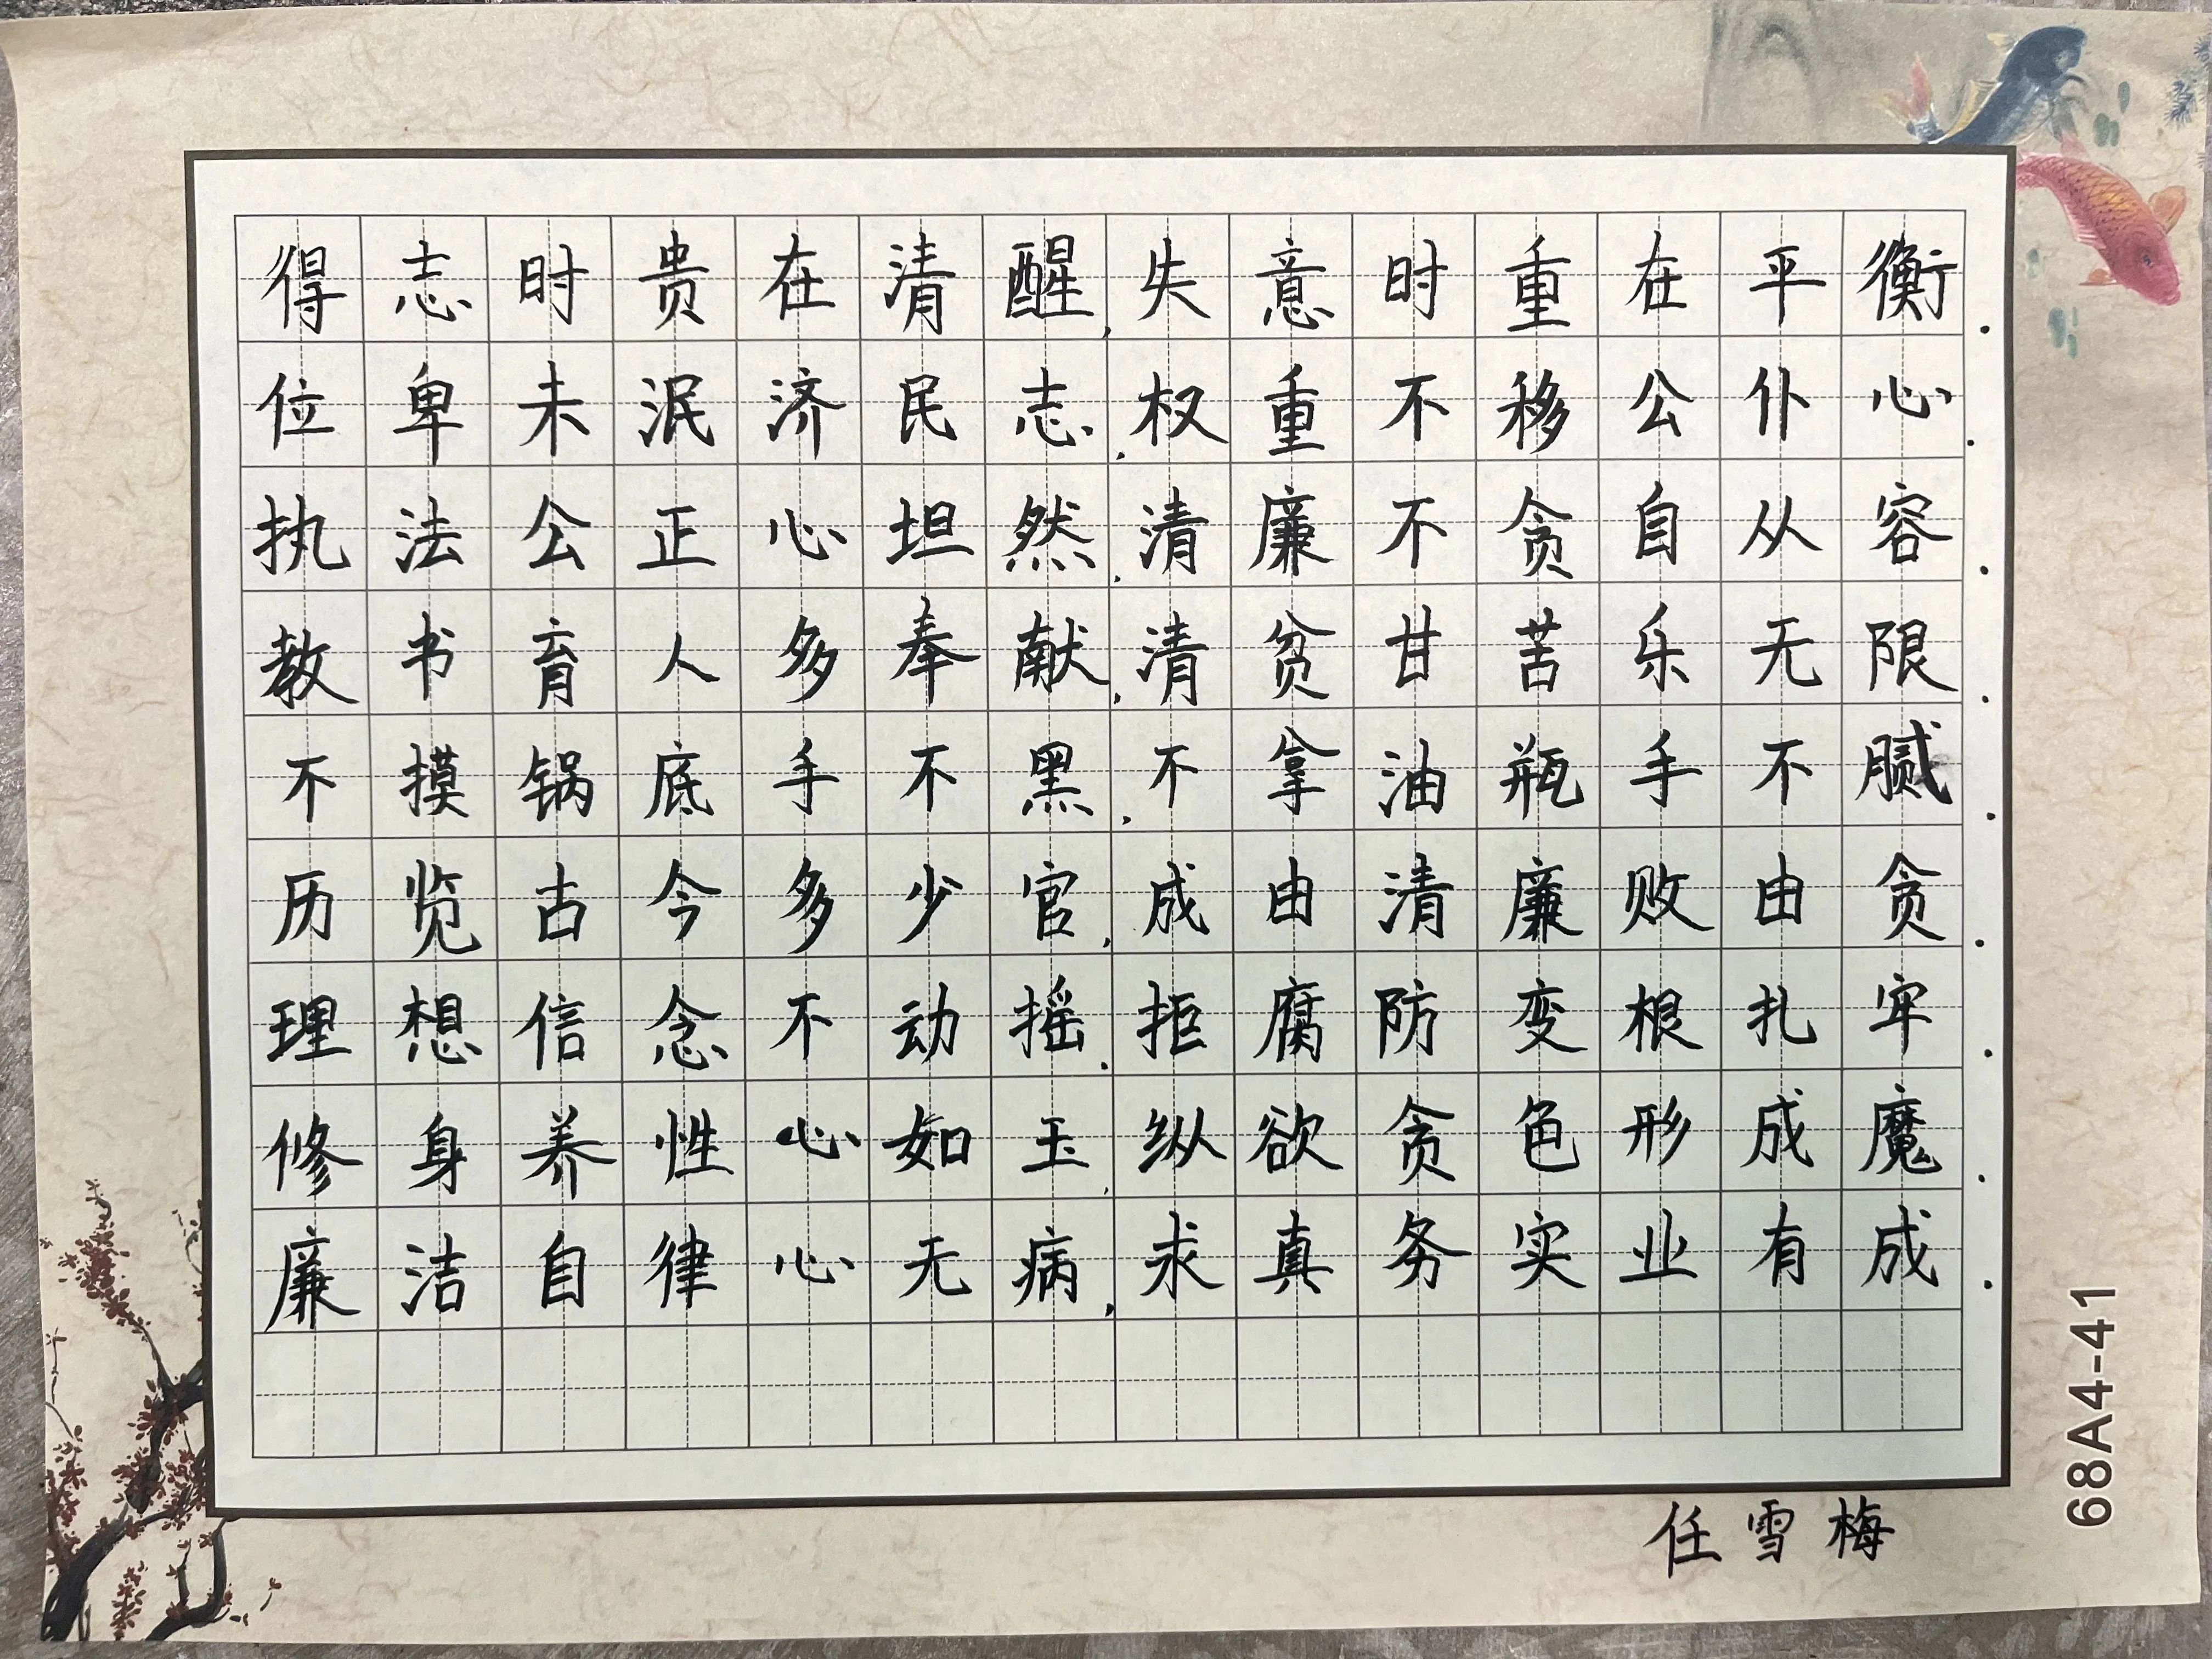 得志时贵在清醒,失意时重在平衡.
位卑未泯济民志,权重不移公仆心.
执法公正心坦然,清廉不贪自从容.
教书育人多奉献,清贫甘苦乐无限.
不摸锅底手不黑,不拿油瓶手不腻.
历览古今多少官,成由清廉败由贪.
理想信念不动摇.拒腐防变根扎牢.
修身养性心如玉,纵欲贪色形成魔.
廉洁自律心无病,求真务实业有成.
任雪梅
68A4-41